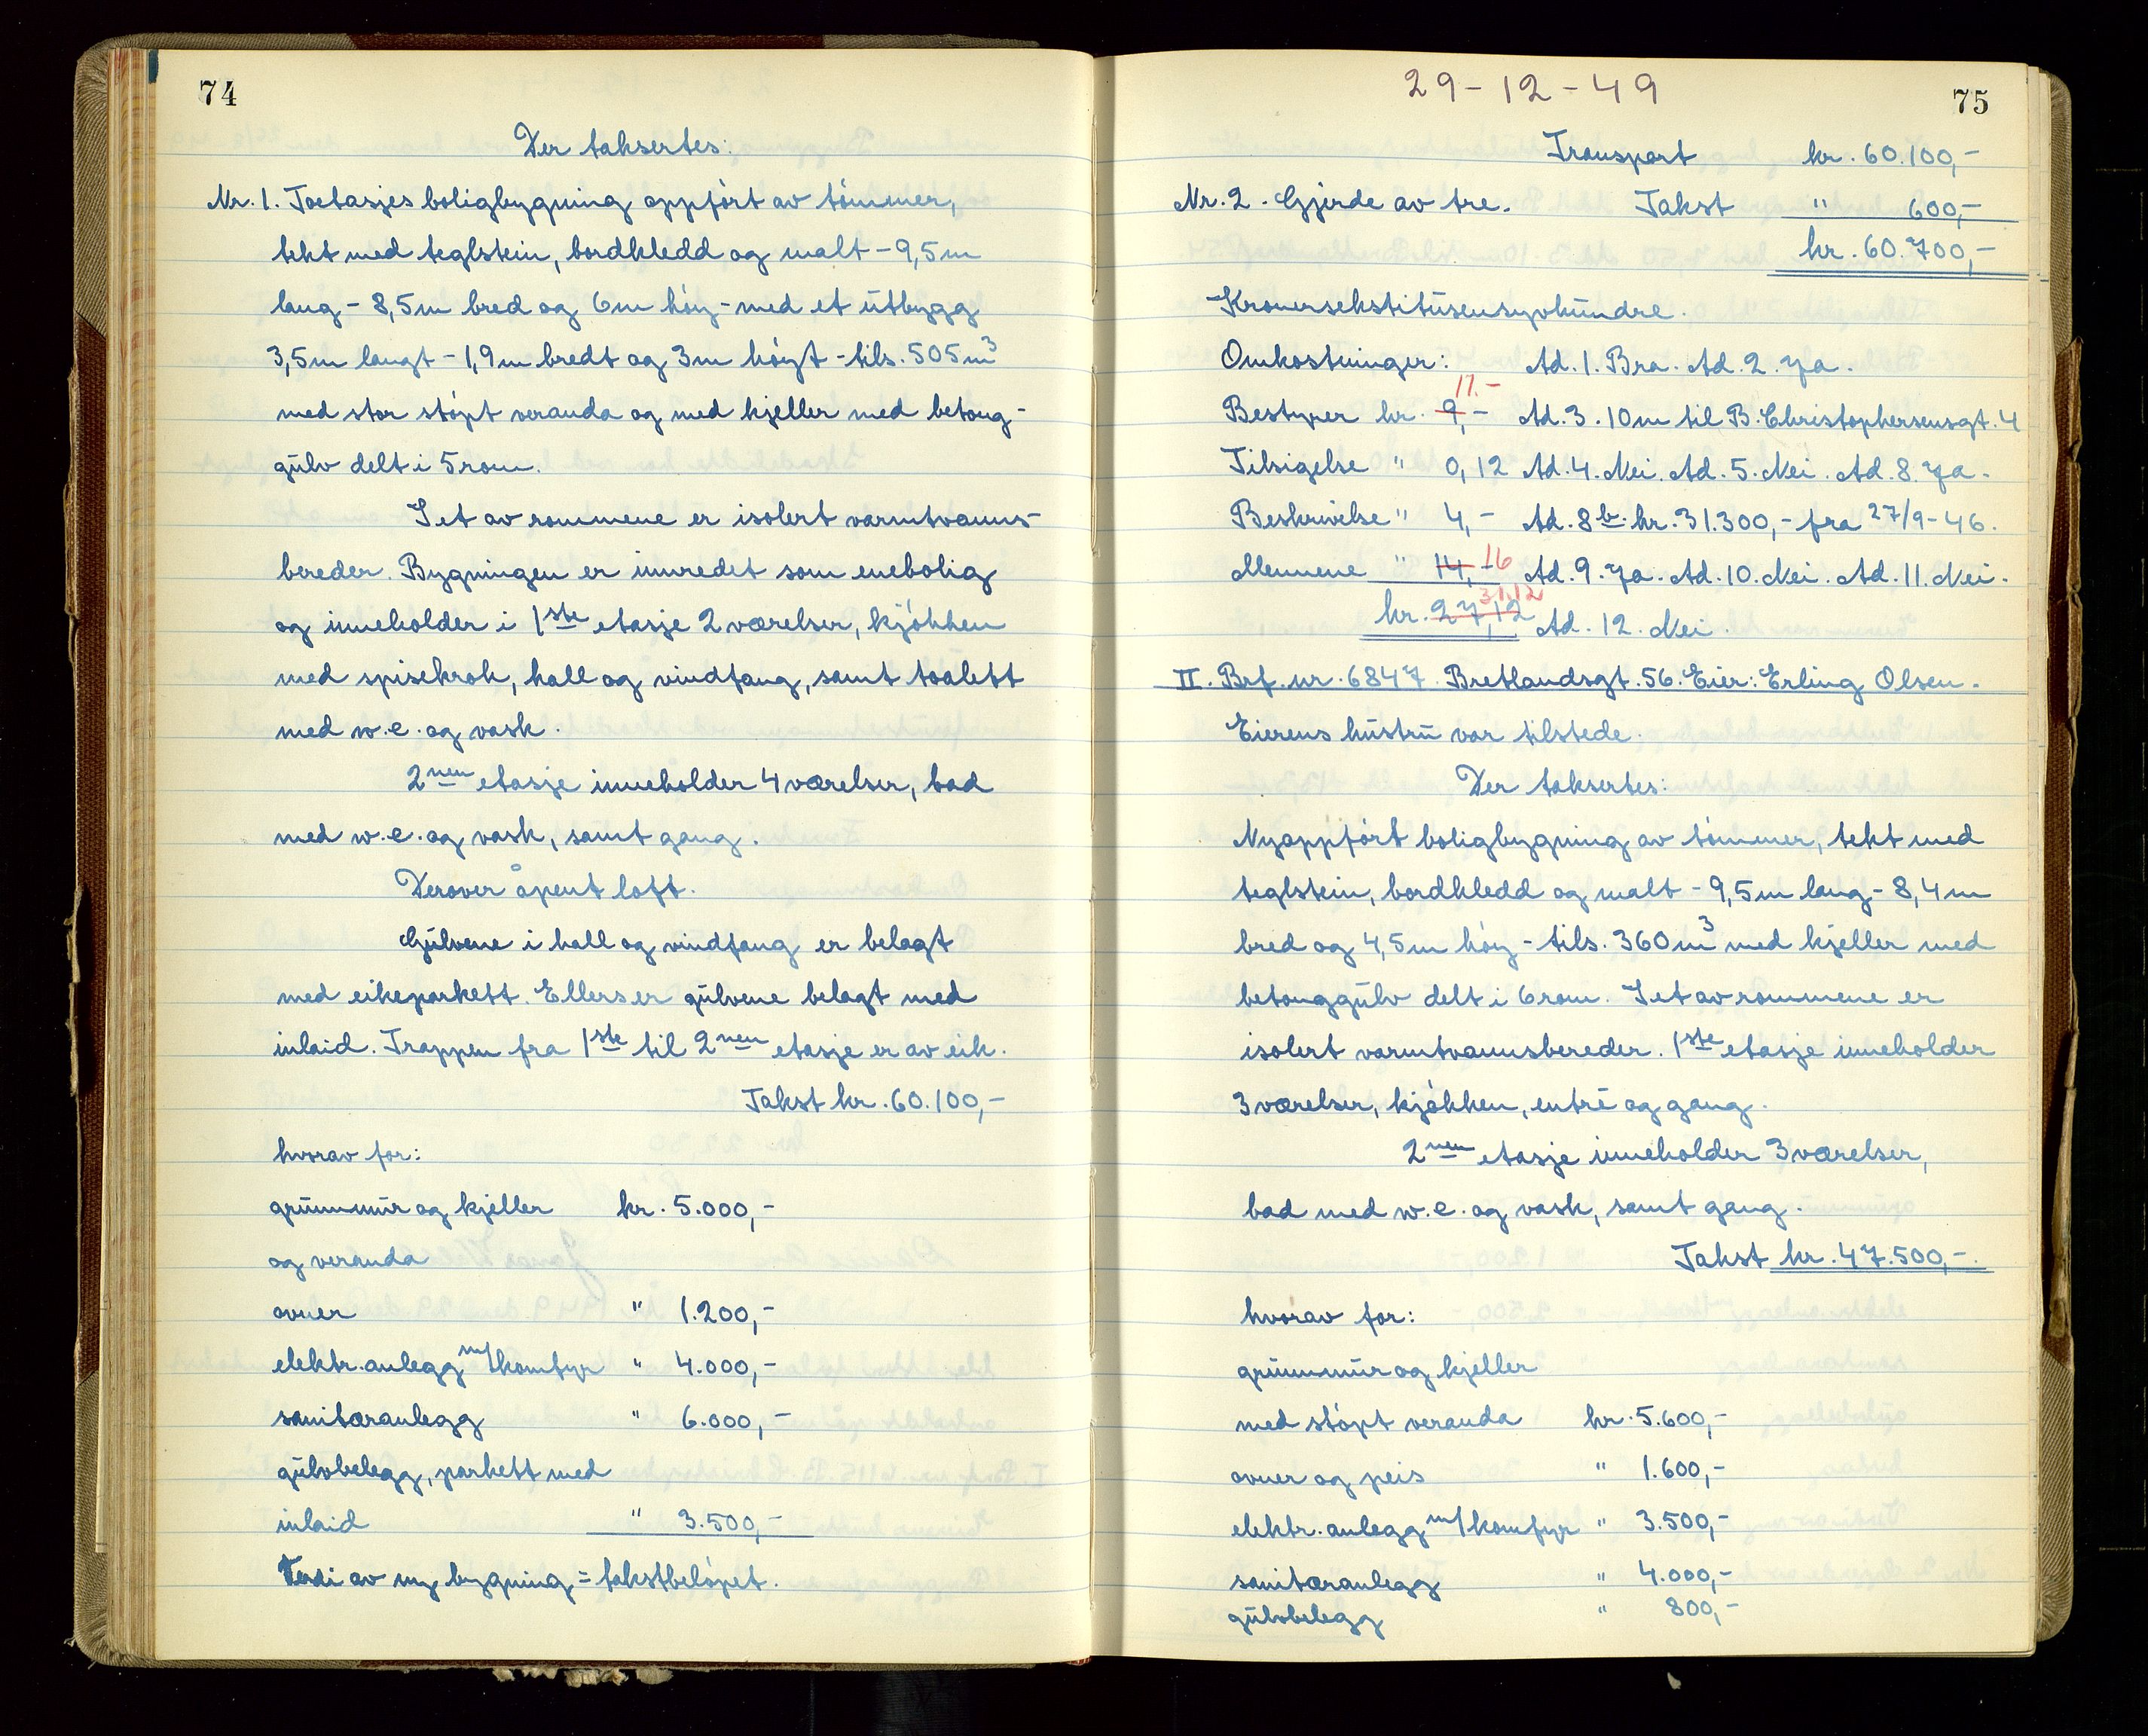 74
Der taksertes:
Nr. 1. Toetasjes boligbygning oppført av tømmer,
tekt med teglstein, bordkledd og malt - 9,5 m
lang - 8,5 m bred og 6 m høy - med et utbygg
3,5 m langt - 1,9 m bredt og 3 m høyt - tils. 505 m³
med stor støpt veranda og med kjeller med betong-
gulv delt i 5 rom.
I et av rommene er isolert varmtvanns-
bereder. Bygningen er innredet som enebolig
og inneholder i 1ste etasje 2 værelser, kjøkken
med spisekrok, hall og vindfang, samt toalett
med w.c. og vask.
2nen etasje inneholder 4 værelser, bad
med w.c. og vask, samt gang.
Derover åpent loft.
Gulvene i hall og vindfang er belagt
med eikeparkett. Ellers er gulvene belagt med
inlaid. Trappen fra 1ste til 2nen etasje er av eik.
Takst kr. 60.100,-
hvorav for:
grunnmur og kjeller kr. 5.000,-
og veranda
ovner " 1.200,-
elektr. anlegg m/komfyr " 4.000,-
sanitæranlegg " 6.000,-
gulvbelegg, parkett med
inlaid " 3.500,-
Verdi av ny bygning = takstbeløpet.
29-12-49
75
Transport kr. 60.100,-
Nr. 2. Gjerde av tre. Takst " 600,-
kr. 60.700,-
Kronersekstitusensyvhundre.
Omkostninger: Ad. 1. Bra. Ad. 2. Ja.
11.-
Bestyrer kr. 9,- Ad. 3. 10 m til B. Christophersensgt. 4
Tilsigelse " 0,12 Ad. 4. Nei. Ad. 5. Nei. Ad. 8. Ja.
Beskrivelse " 4,- Ad. 8b. kr. 31.300,- fra 27/9-46.
Mennene " 14,- 16 Ad. 9. Ja. Ad. 10. Nei. Ad. 11. Nei.
31,12
kr. 27,12 Ad. 12. Nei.
II. Brf. nr. 6847. Bretlandsgt. 56. Eier: Erling Olsen.
Eierens hustru var tilstede.
Der taksertes:
Nyoppført boligbygning av tømmer, tekt med
teglstein, bordkledd og malt - 9,5 m lang - 8,4 m
bred og 4,5 m høy - tils. 360 m³ med kjeller med
betonggulv delt i 6 rom. I et av rommene er
isolert varmtvannsbereder. 1ste etasje inneholder
3 værelser, kjøkken, entré og gang.
2nen etasje inneholder 3 værelser,
bad med w.c. og vask, samt gang.
Takst kr. 47.500,-.
hvorav for:
grunnmur og kjeller
med støpt veranda kr. 5.600,-
ovner og peis " 1.600,-
elektr. anlegg m/komfyr " 3.500,-
sanitæranlegg " 4.000,-
gulvbelegg " 800,-